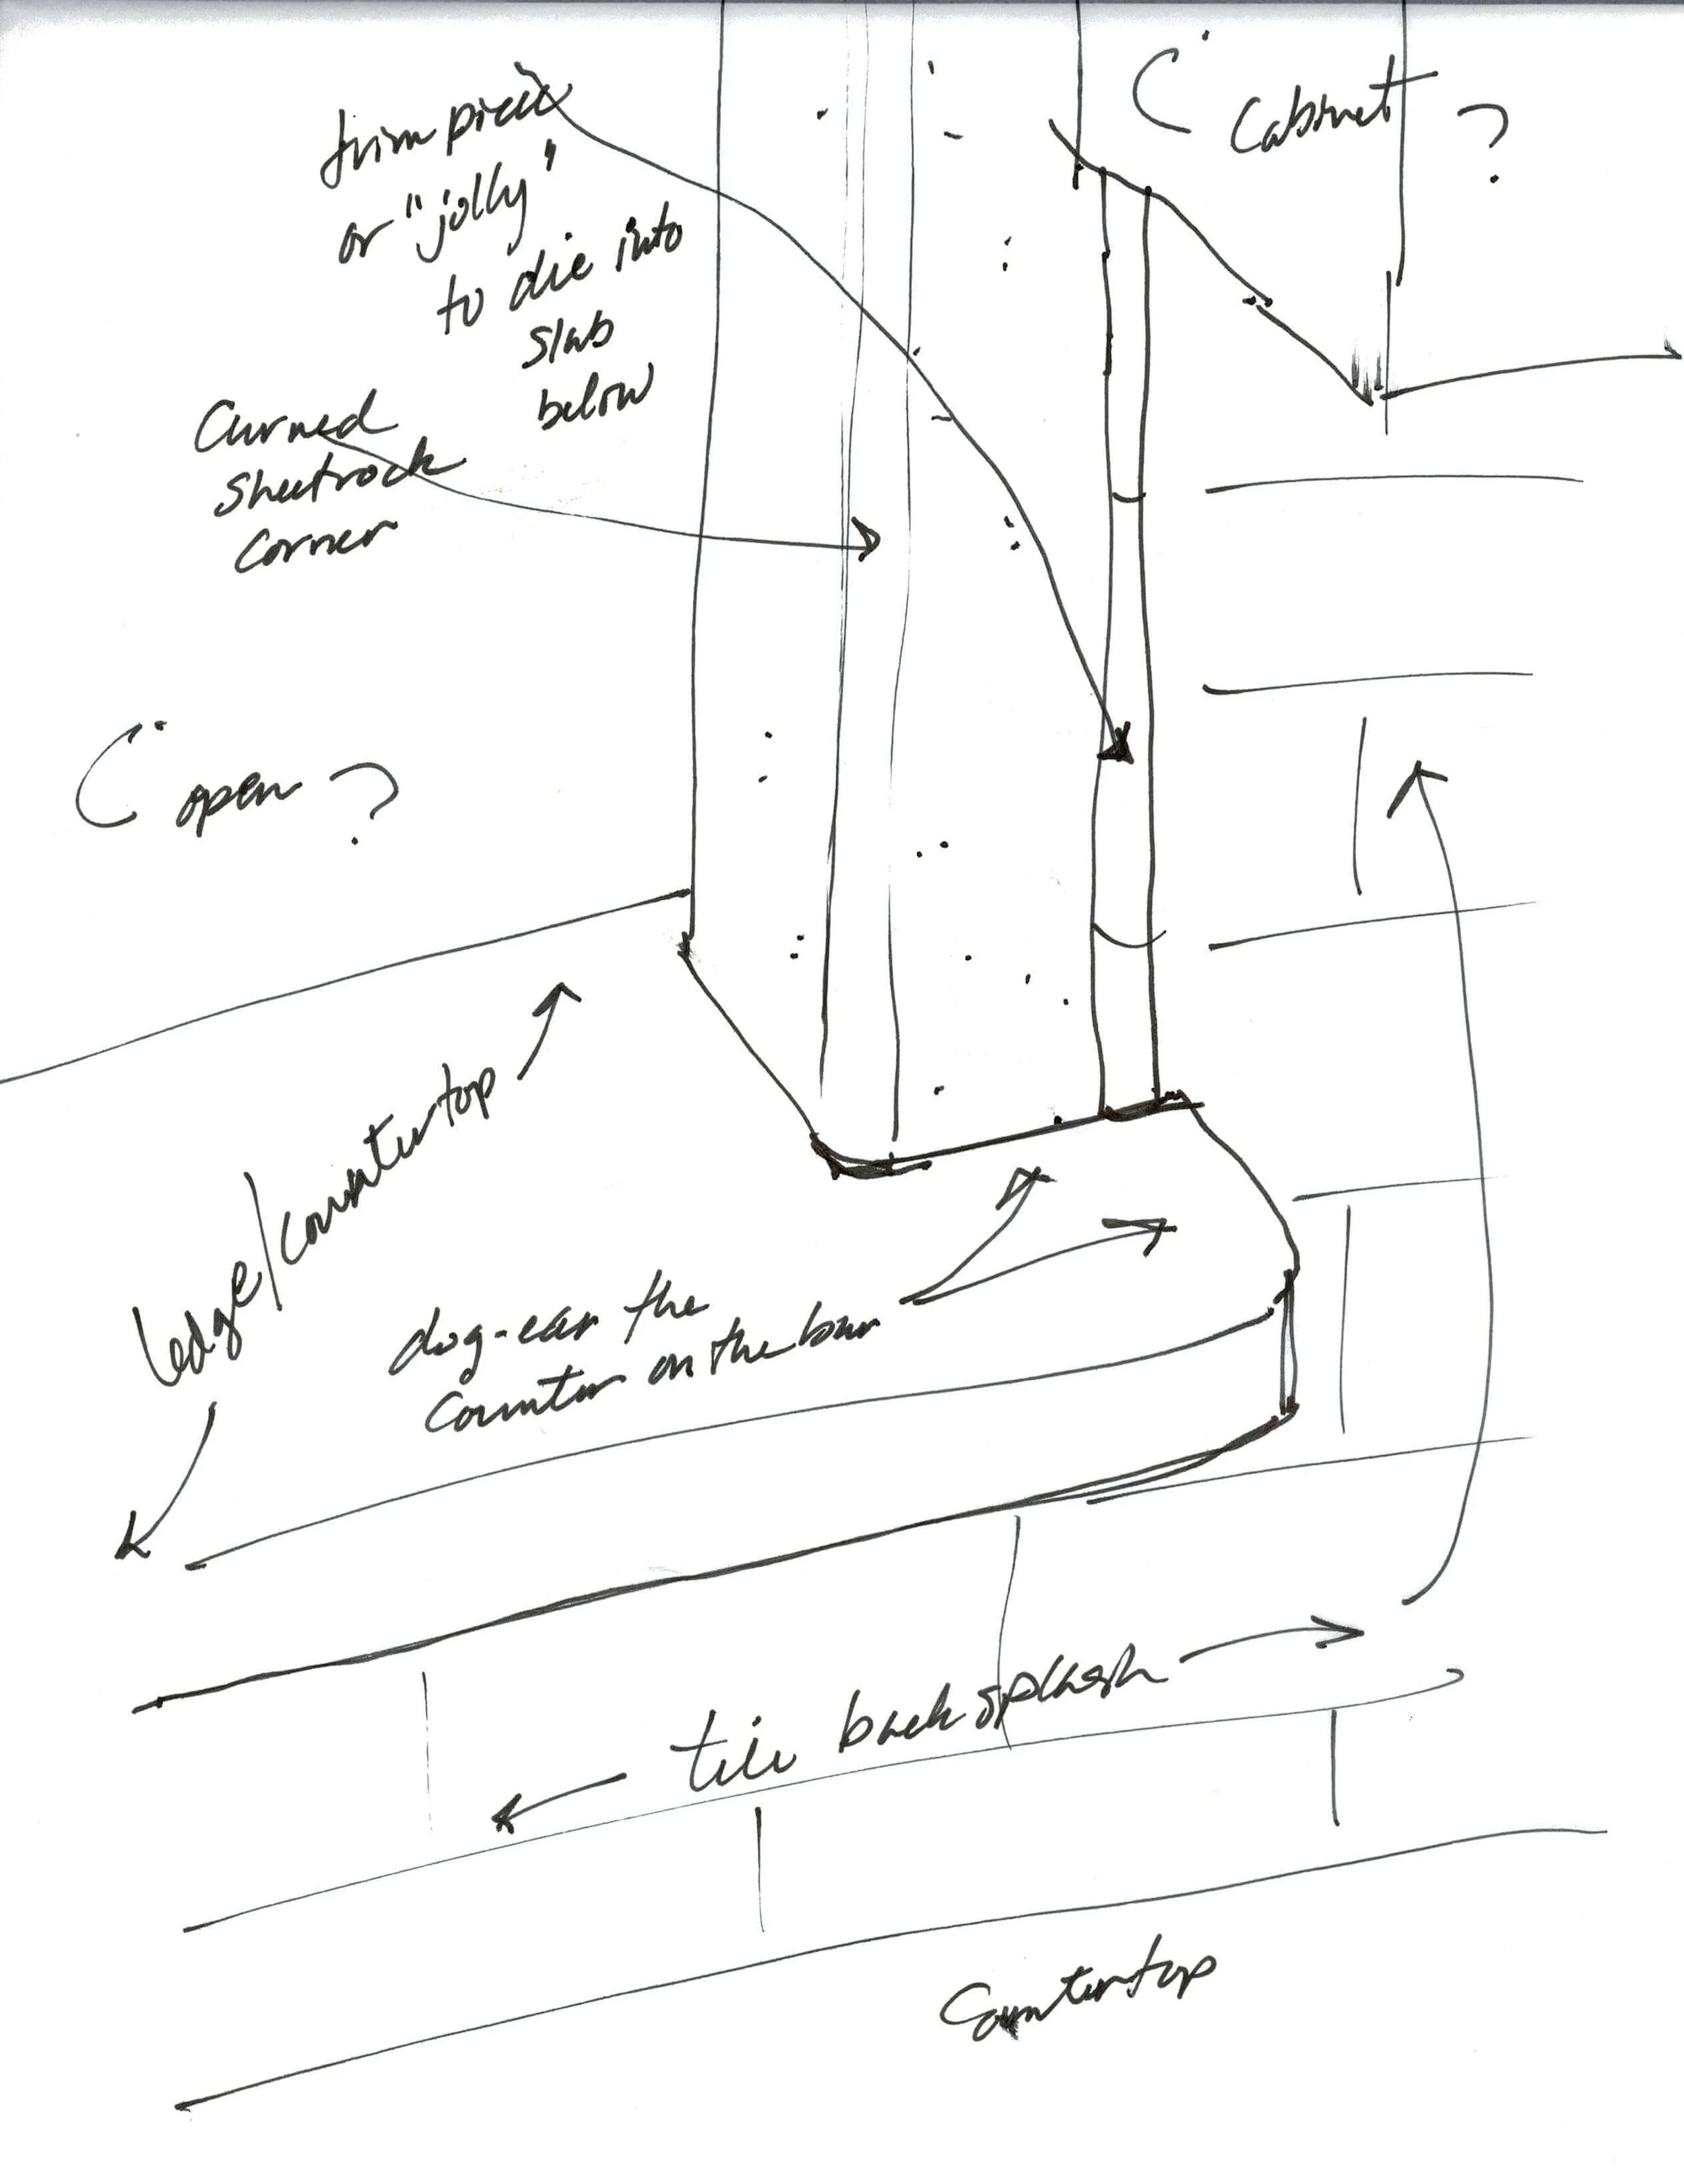 trim piece
or "jolly"
to die into
slab
below
Cabinet ?
Curned
Sheetrock
Corner
open ?
ledge/countertop
dog-ear the
Counter on the bar
tile backsplash
Countertop